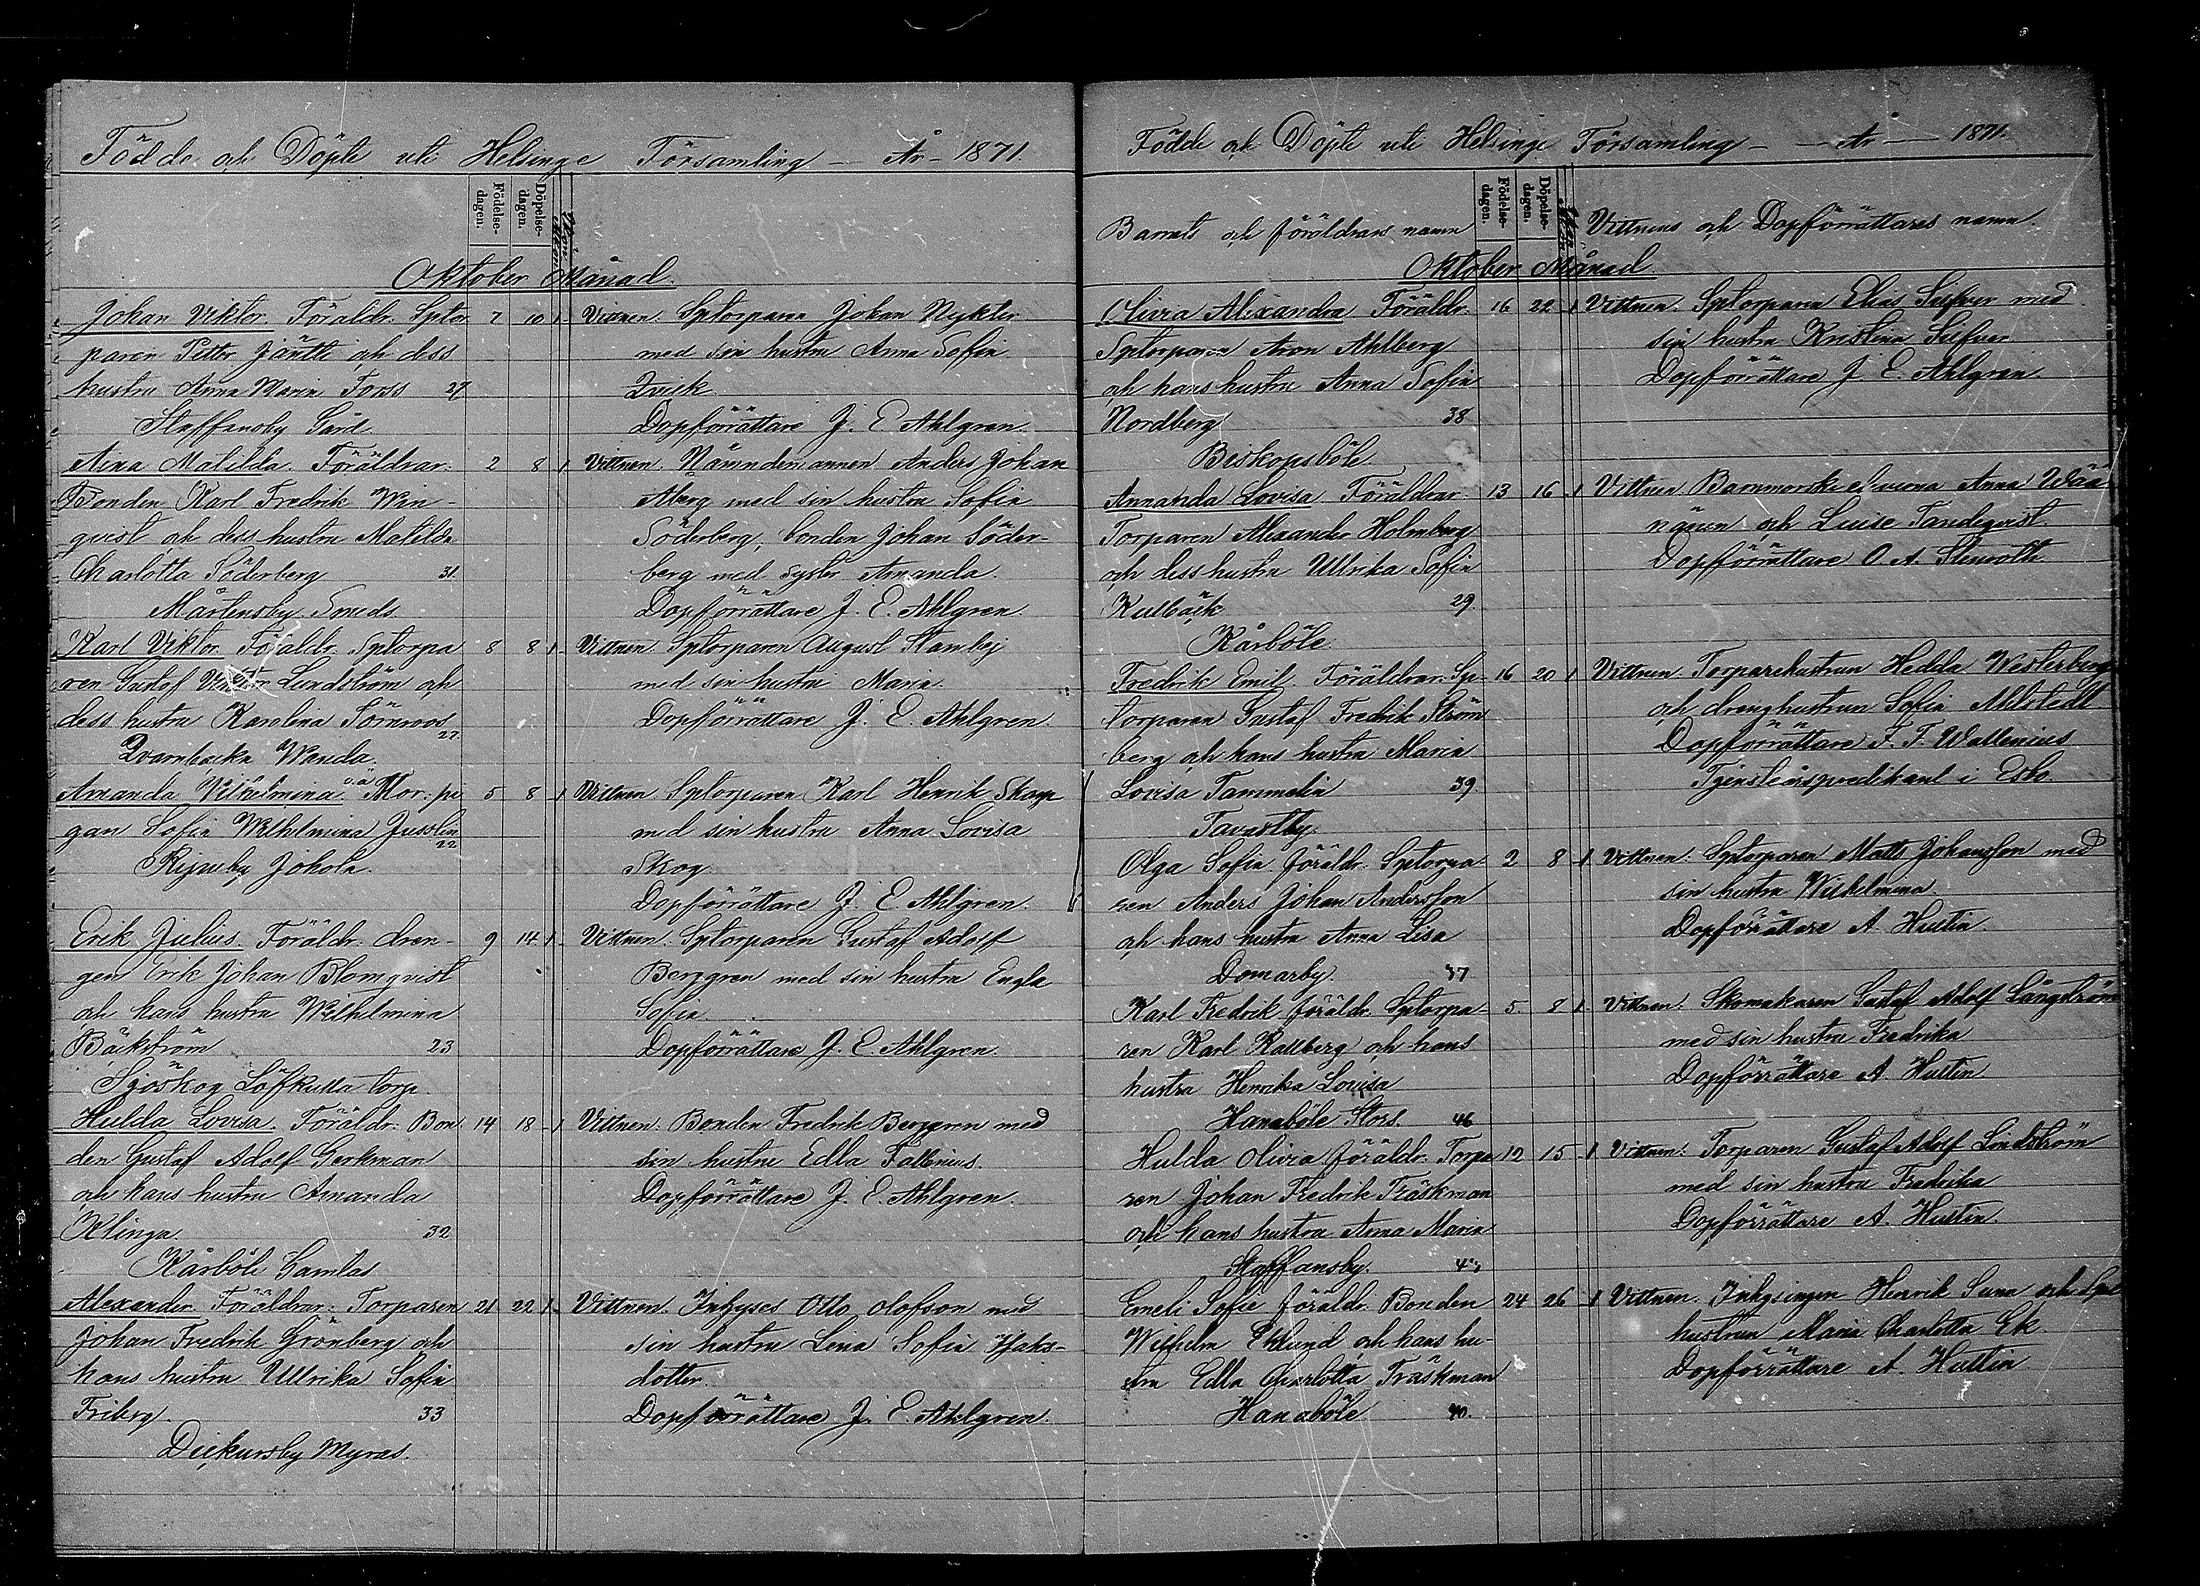 Födde och Döpte uti Helsinge Församling — År — 1871.
Födelse-dagen. Döpelse-dagen.
Oktober Månad.
Johan Viktor. Föräldr. Sptor 7 10 1 Vittnen. Sptorparen Johan Nykter
paren Petter Jäntti och dess med sin hustru Anna Sofia
hustru Anna Maria Forss 27 Qvick
Staffansby Gård Dopförrättare J. E. Ahlgren
Aina Matilda. Föräldrar: 2 8 1 Vittnen. Nämndemannen Anders Johan
Bonden Karl Fredrik Win- Åberg med sin hustru Sofia
qvist och dess hustru Matilda Söderberg, bonden Johan Söder-
Charlotta Söderberg 31. berg med syster Amanda.
Mårtensby Smeds Dopförrättare J. E. Ahlgren
Karl Viktor. Föräldr. Sptorpa 8 8 1 Vittnen. Sptorparen August Stambej
ren Gustof Lundström och med sin hustru Maria.
dess hustru Karolina Törnroos 27. Dopförrättare J. E. Ahlgren
Qvarnbacka Wanda.
Amanda Vilhelmina. o.ä. Mor: pi 5 8 1 Vittnen Sptorparen Karl Henrik Skog
gan Sofia Wilhelmina Jusslin 22 med sin hustru Anna Lovisa
Ripuby Johola. Skog
Dopförrättare J. E. Ahlgren.
Erik Julius. Föräldr. dren- 9 14 1 Vittnen. Sptorparen Gustaf Adolf
gen Erik Johan Blomqvist Berggren med sin hustru Engla
och hans hustru Wilhelmina Sofia
Bäckström 23 Dopförrättare J. E. Ahlgren.
Sjöskog Löfkulla torp.
Hulda Lovisa. Föräldr: Bon 14 18 1 Vittnen. Bonden Fredrik Berggren med
den Gustaf Adolf Gerkman sin hustru Edla Fallenius.
och hans hustru Amanda Dopförrättare J. E. Ahlgren.
Klinga 32
Kårböle Gamlas
Alexander. Föräldrar: Torparen 21 22 1 Vittnen. Inhyses Otto Olofson med
Johan Fredrik Grönberg och sin hustru Lena Sofia Isaks-
hans hustru Ullrika Sofia dotter.
Friberg. 33 Dopförrättare J. E. Ahlgren
Dickursby Myras.
Födde och Döpte uti Helsinge Församling — — År — 1871.
Barnets och föräldrars namn Födelse-dagen. Döpelse-dagen. Vittnens och Dopförrättares namn.
Oktober Månad
Olivia Alexandra Föräldr. 16 22 1 Vittnen. Sptorparen Elias Silfver med
Sptorparen Aron Ahlberg sin hustru Kristina Silfver
och hans hustru Anna Sofia Dopförrättare J. E. Ahlgren.
Nordberg 38
Biskopsböle.
Amanda Lovisa Föräldrar 13 16 1 Vittnen Barnmorske Anna Wää
Torparen Alexander Holmberg nänen och Luise Tandeqvist.
och dess hustru Ullrika Sofia Dopförrättare O. A. Stenroth
Kulbäck 29.
Kårböle
Fredrik Emil. Föräldrar: Sp- 16 20 1 Vittnen. Torparehustrun Hedda Westerberg
torparen Gustaf Fredrik Ström och drenghustrun Sofia Ahlstedt
berg och hans hustru Maria Dopförrättare F. T. Wallenius
Lovisa Tammelin 39 Tjensteårspredikant i Esbo
Tavastby.
Olga Sofia föräldr. Sptorpa 2 8 1 Vittnen: Sptorparen Matts Johansson med
ren Anders Johan Andersson sin hustru Wilhelmina.
och hans hustru Anna Lisa Dopförrättare A. Hustin
Domarby. 37
Karl Fredrik föräldr. Sptorpa- 5 8 1 Vittnen: Skomakaren Gustaf Adolf Långström
ren Karl Kallberg och hans med sin hustru Fredrika
hustru Henrika Lovisa Dopförrättare A. Hustin
Hanaböle Stors. 46
Hulda Olivia föräldr. Torpa 12 15 1 Vittnen: Torparen Gustaf Adolf Lindström
ren Johan Fredrik Träskman med sin hustru Fredrika
och hans hustru Anna Maria Dopförrättare A. Hustin.
Staffansby.
Emeli Sofie föräldr. Bonden 24 26 1 Vittnen. Inhysingen Henrik Suna och
Wilhelm Eklund och hans hu- hustrun Maria Charlotta Ek.
stru Edla Charlotta Träskman Dopförrättare A. Hustin
Hanaböle 40.